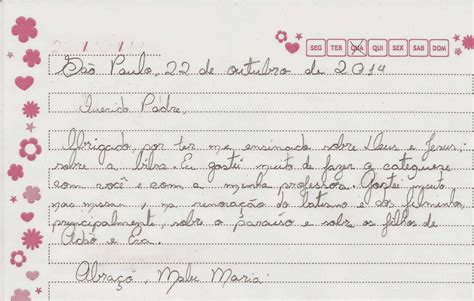 SEG TER QUA QUI SEX SAB DOM
São Paulo, 22 de outubro de 2014
Querido Padre,
Obrigado, por ter me ensinado sobre Deus e Jesus,
sobre a bíblia. Eu gostei muito de fazer a catequese
com você e com a minha professora. Gostei muito
nas missas, na renovação do batismo e dos filminhos,
principalmente, sobre o paraíso e sobre os filhos de
Adão e Eva.
Abraço, Malu Maria